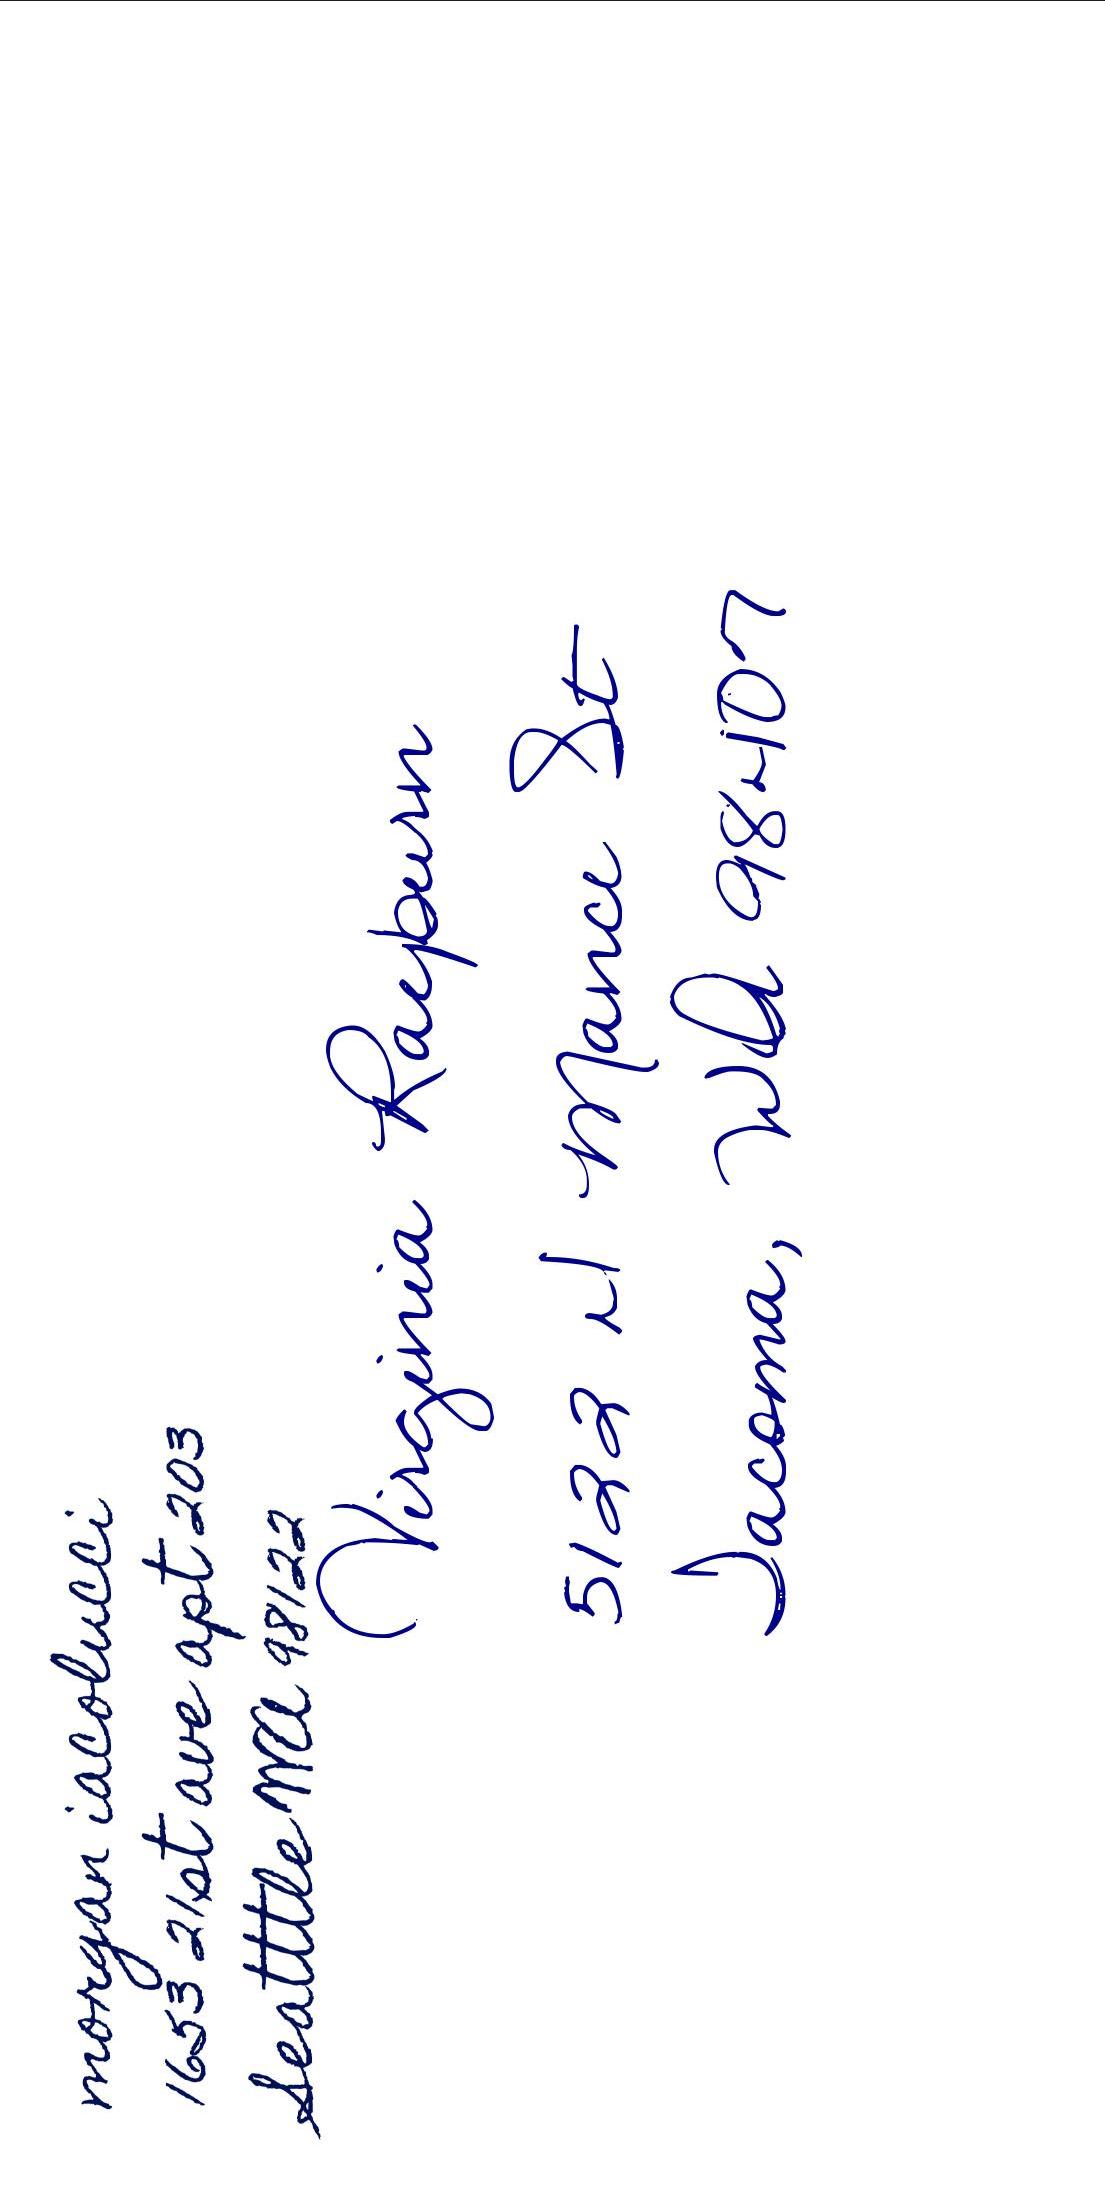 morgan iacolucci
1653 21st ave apt 203
Seattle WA 98122
Virginia Raepburn
5122 N Mance St
Tacoma, WA 98407